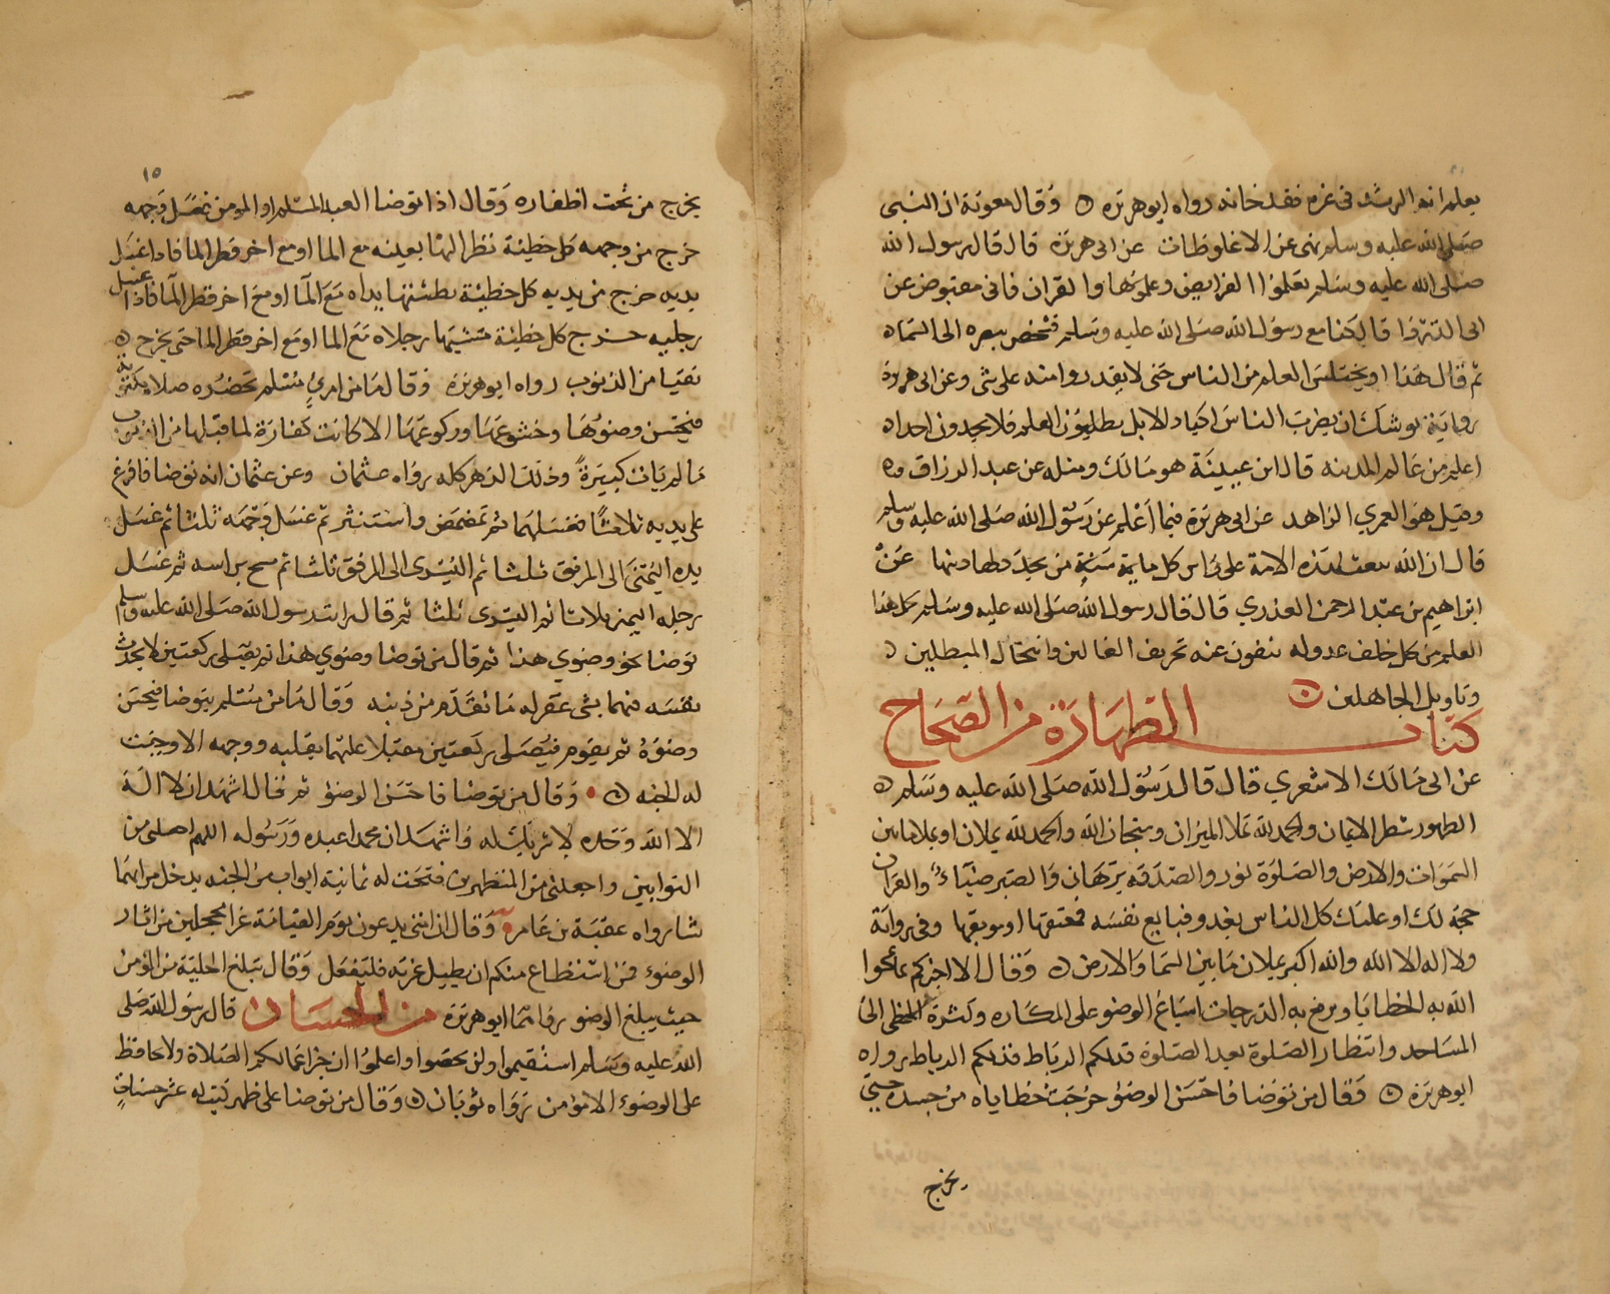 يعلم ان الرشد في غيره فقد خانه رواه ابو هريرة ٥ وقال معوية ان النبى
صلى الله عليه وسلم نهى عن الاغلوطات عن ابى هريرة قال قال رسول الله
صلى الله عليه وسلم تعلموا الفرايض وعلموها والقران فانى مقبوض عن
ابى الدردا قال كنا مع رسول الله صلى الله عليه وسلم فشخص ببصره الى السماء
ثم قال هذا اوان يختلس العلم من الناس حتى لا يقدروا منه على شى وعن ابى هريرة
رواية يوشك ان يضرب الناس اكباد الابل يطلبون العلم فلا يجدون احدا
اعلم من عالم المدينه قال ابن عيينة هو مالك ومثله عن عبد الرزاق
وقيل هو العمري الزاهد عن ابى هريرة فيما اعلم عن رسول الله صلى الله عليه وسلم
قال ان الله يبعث لهذه الامة على راس كل ماية سنة من يجدد لها دينها عن
ابراهيم بن عبد الرحمن العذري قال قال رسول الله صلى الله عليه وسلم يحمل هذا
العلم من كل خلف عدوله ينفون عنه تحريف الغالين وانتحال المبطلين
وتاويل الجاهلين ٥
كتاب الطهارة من الصحاح
عن ابى مالك الاشعري قال قال رسول الله صلى الله عليه وسلم ٥
الطهور شطر الايمان والحمد لله تملا الميزان وسبحان الله والحمد لله يملان او يملا ما بين
السموات والارض والصلوة نور والصدقه برهان والصبر ضياء والقران
حجة لك او عليك كل الناس يغدو فبايع نفسه فمعتقها او موبقها وفى رواية
ولا اله الا الله والله اكبر يملان ما بين السما والارض ٥ وقال الا اخبركم بما يمحوا
الله به الخطايا ويرفع به الدرجات اسباغ الوضو على المكاره وكثرة الخطى الى
المساجد وانتظار الصلوة بعد الصلوة فذلكم الرباط فذلكم الرباط رواه
ابو هريرة ٥ وقال من توضا فاحسن الوضو خرجت خطاياه من جسده حتى
يخرج
١٥
يخرج من تحت اظفاره وقال اذا توضا العبد المسلم او المومن فغسل وجهه
خرج من وجهه كل خطيئة نظر اليها بعينه مع الما او مع اخر قطر الما فاذا غسل
يديه خرج من يديه كل خطيئة بطشتها يداه مع الما او مع اخر قطر الما فاذا غسل
رجليه خرج كل خطيئة مشتها رجلاه مع الما او مع اخر قطر الما حتى يخرج
نقيا من الذنوب رواه ابو هريرة وقال ما من امرئ مسلم تحضره صلاة مكتوبة
فيحسن وضوها وخشوعها وركوعها الا كانت كفارة لما قبلها من الذنوب
ما لم يات كبيرة وذلك الدهر كله رواه عثمان وعن عثمان انه توضا فافرغ
على يديه ثلاثا فغسلهما ثم تمضمض واستنثر ثم غسل وجهه ثلثا ثم غسل
يده اليمنى الى المرفق ثلثا ثم اليسرى الى المرفق ثلثا ثم مسح براسه ثم غسل
رجله اليمنى ثلاثا ثم اليسرى ثلثا ثم قال رايت رسول الله صلى الله عليه وسلم
توضا نحو وضوي هذا ثم قال من توضا وضوي هذا ثم يصلى ركعتين لا يحدث
نفسه فيهما بشى غفر له ما تقدم من ذنبه وقال ما من مسلم يتوضا فيحسن
وضوه ثم يقوم فيصلى ركعتين مقبلا عليهما بقلبه ووجهه الا وجبت
له الجنه ٥ وقال من توضا فاحسن الوضو ثم قال اشهد ان لا اله
الا الله وحده لا شريك له واشهد ان محمدا عبده ورسوله اللهم اجعلنى من
التوابين واجعلنى من المتطهرين فتحت له ثمانية ابواب من الجنه يدخل من ايها
شا رواه عقبة بن عامر وقال ان امتى يدعون يوم القيامة غرا محجلين من اثار
الوضوء فمن استطاع منكم ان يطيل غرته فليفعل وقال تبلغ الحلية من المؤمن
حيث يبلغ الوضو رواهما ابو هريرة من الحسان قال رسول الله صلى
الله عليه وسلم استقيموا ولن تحصوا واعلموا ان خير اعمالكم الصلاة ولا يحافظ
على الوضوء الا مؤمن رواه ثوبان ٥ وقال من توضا على طهر كتب له عشر حسنات